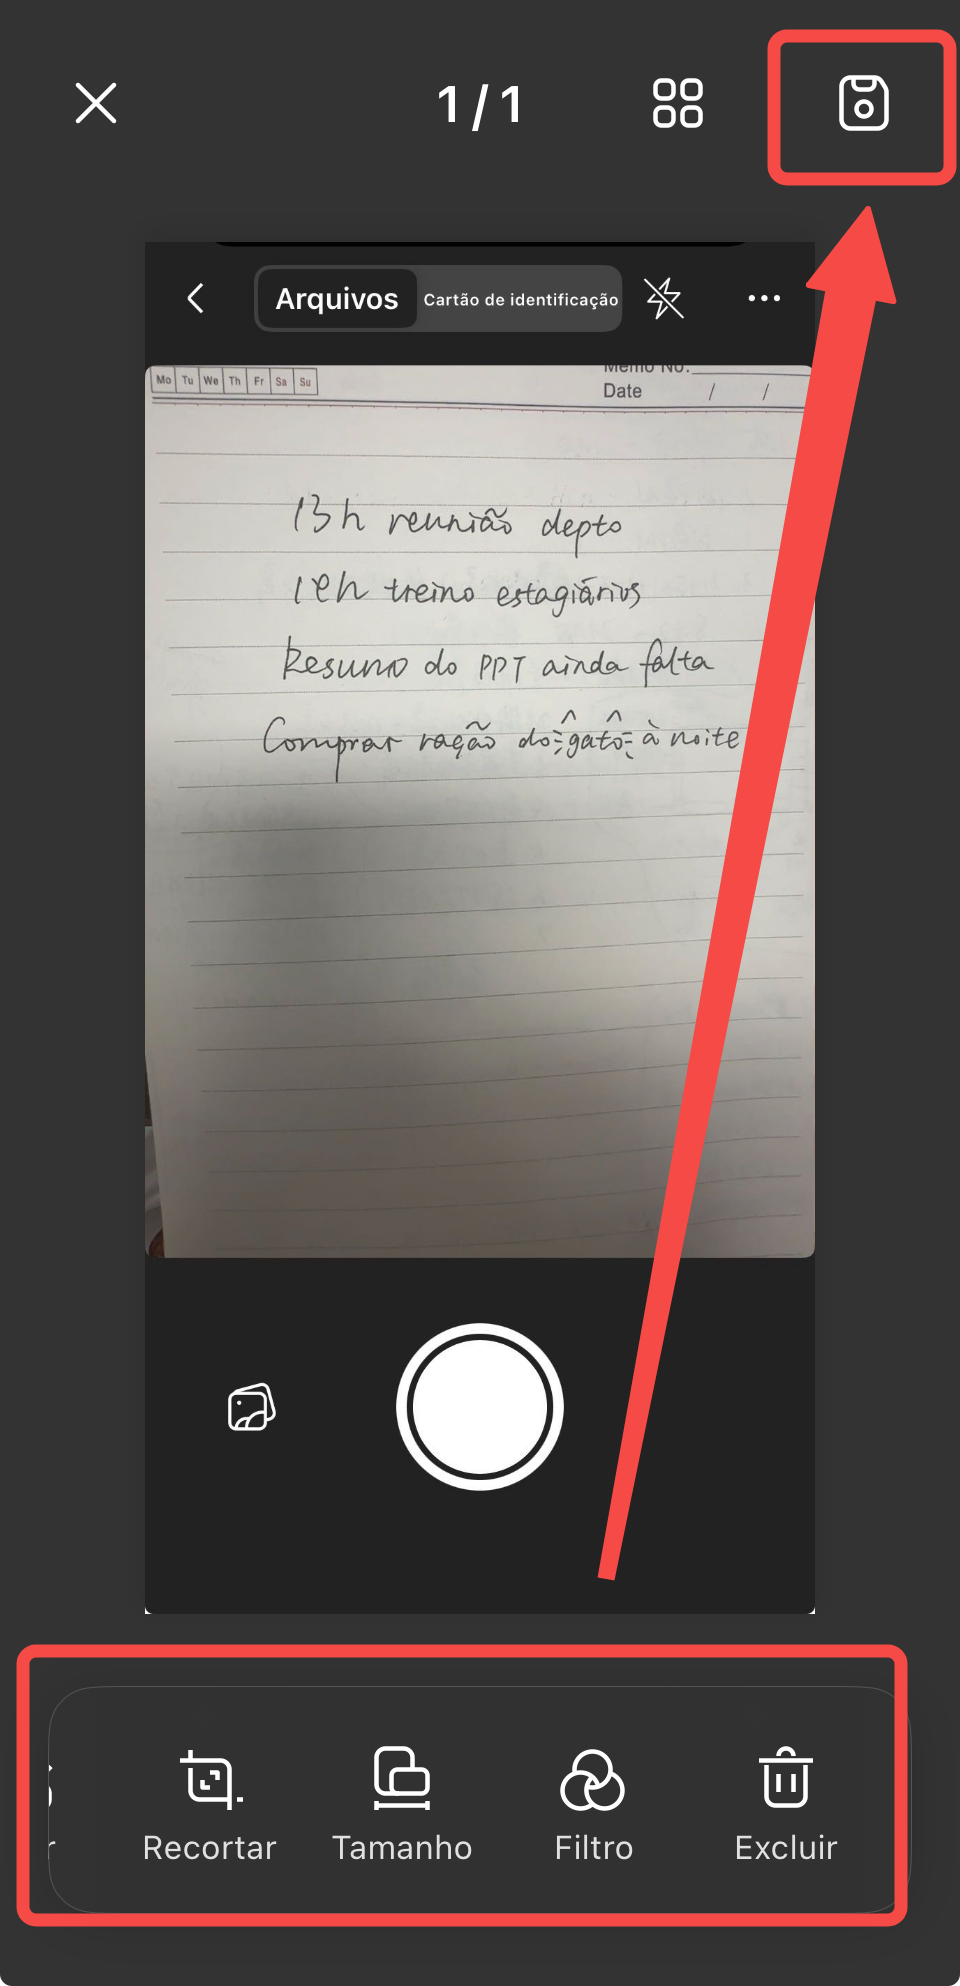 1/1
Arquivos Cartão de identificação
Mo Tu We Th Fr Sa Su
Memo No.:
Date / /
13h reunião depto
treino estagiários
Resumo do PPT ainda falta
Comprar ração do gato à noite
Recortar Tamanho Filtro Excluir